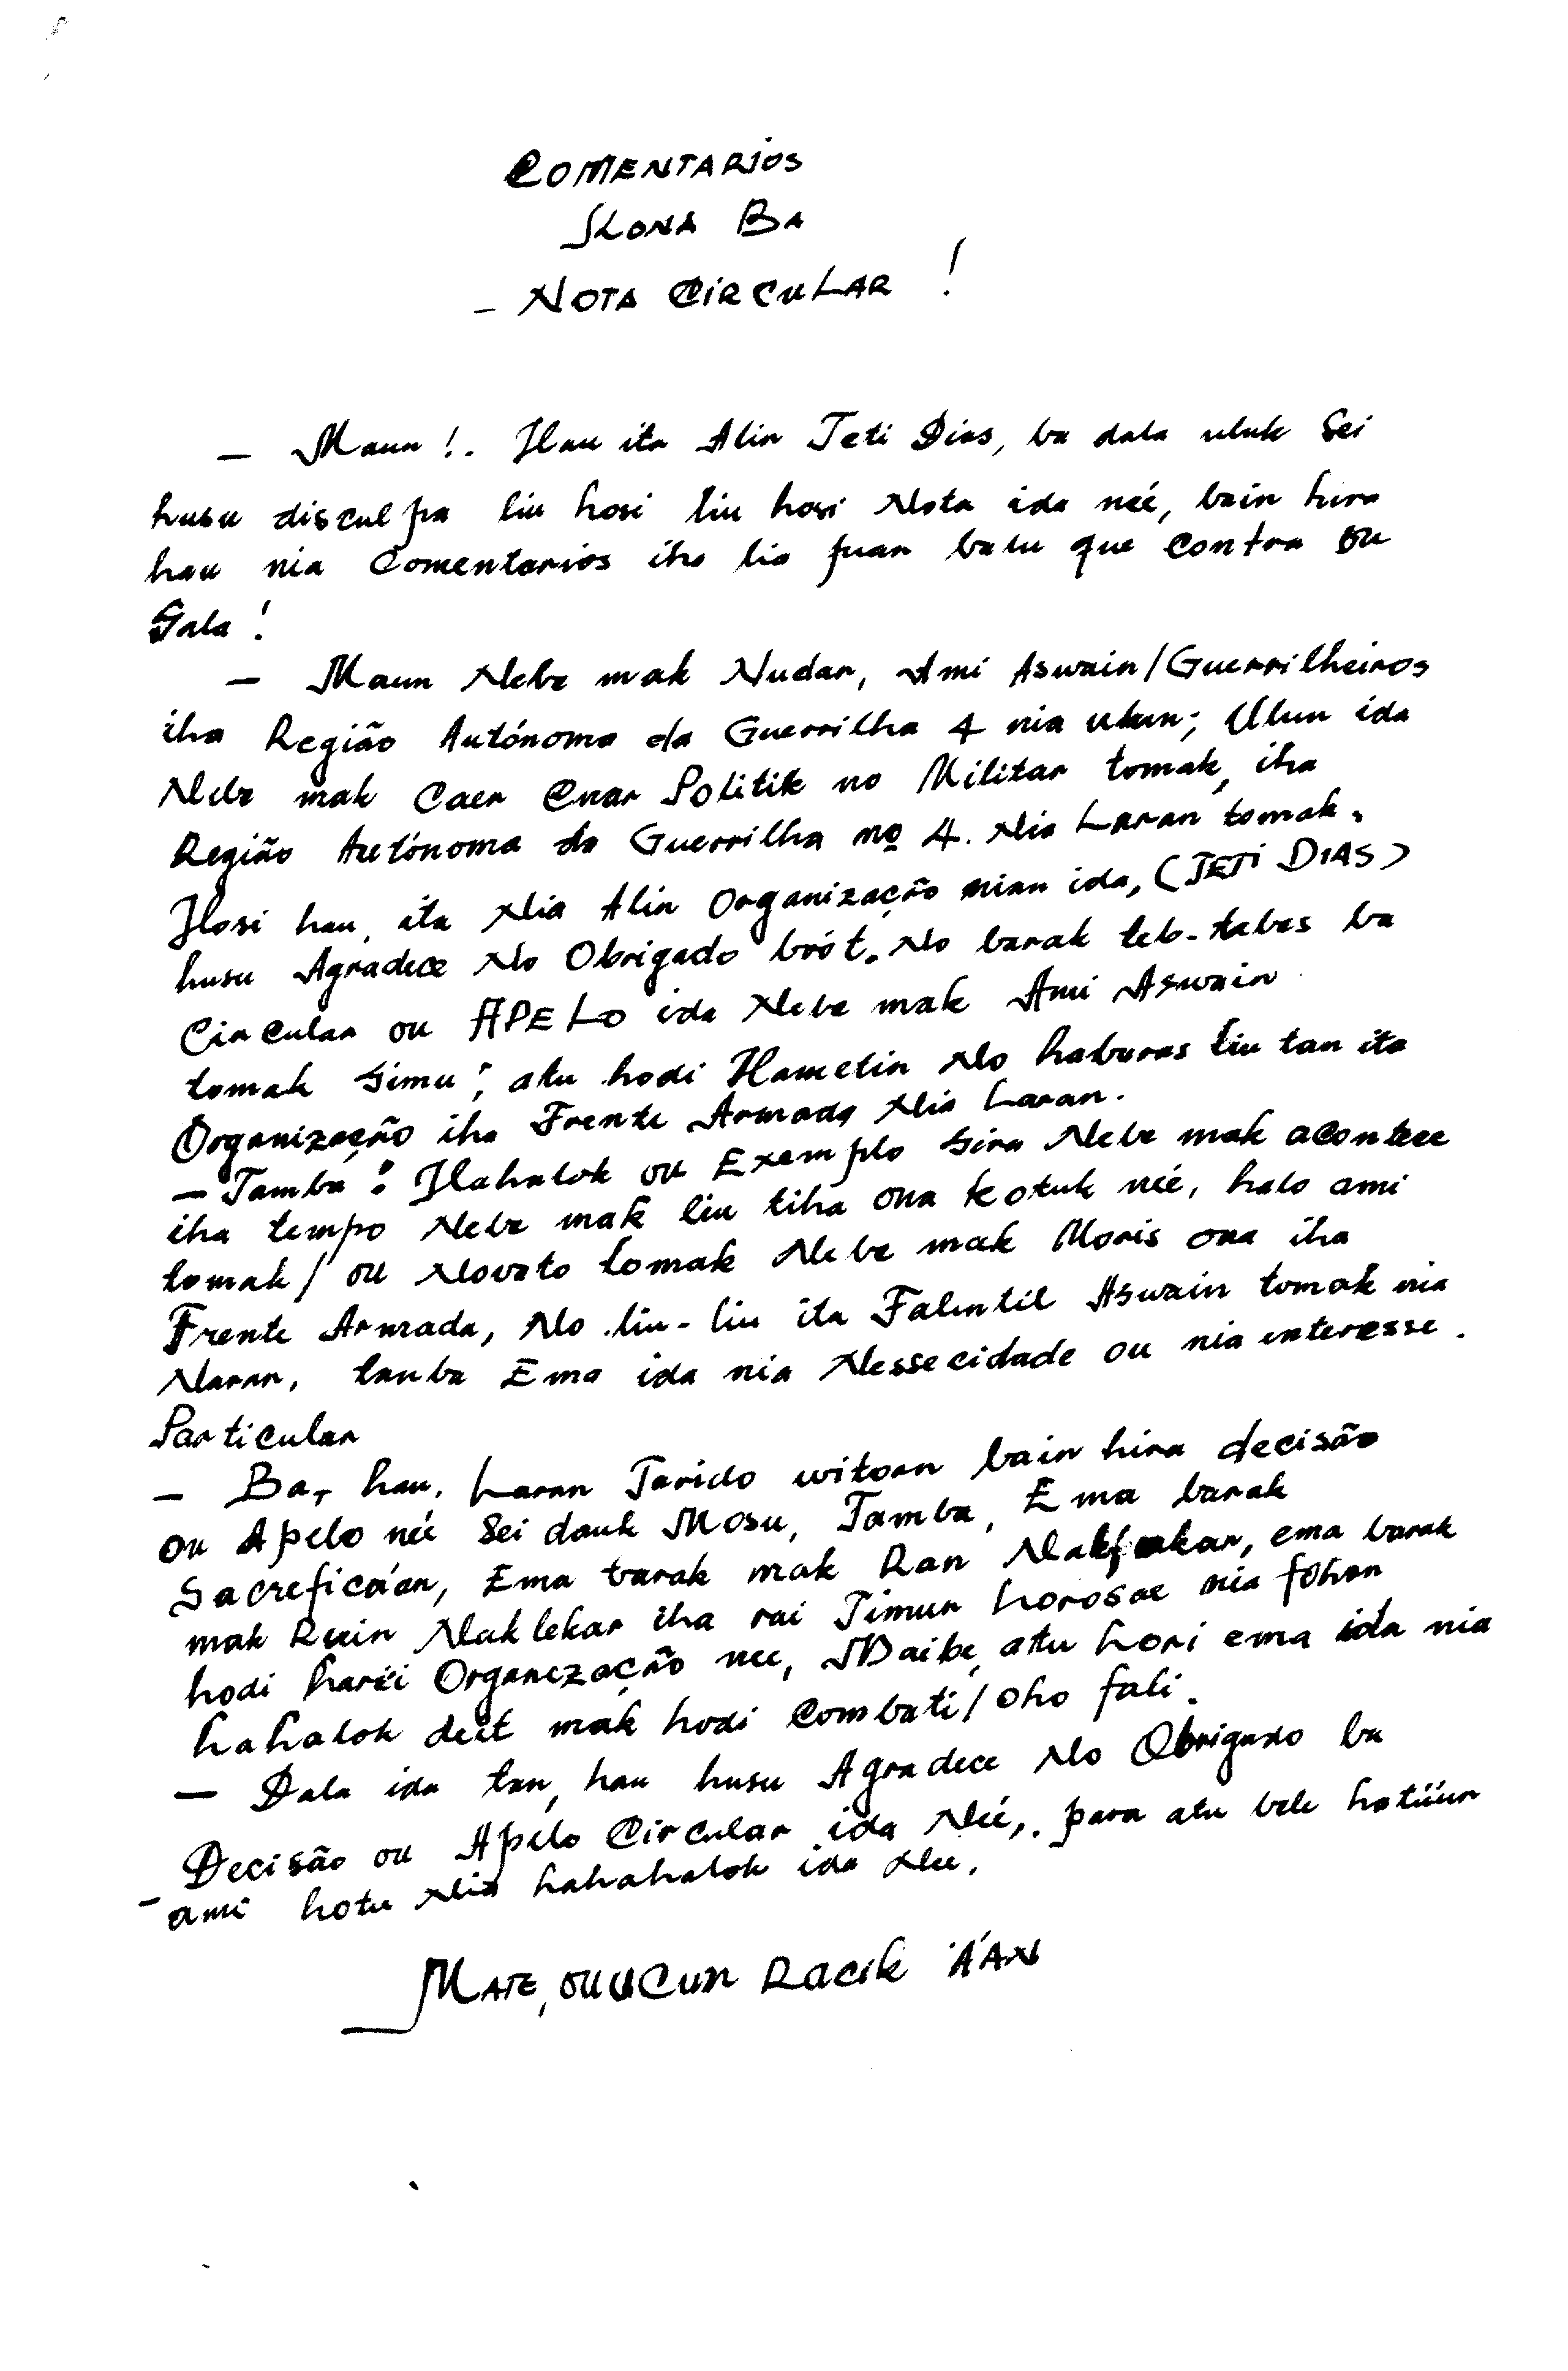 COMENTARIOS
KONA BA
- NOTA CIRCULAR !
- Maun !. Hau ita Alin Teti Dias, ba dala uluk Sei
husu disculpa liu hosi liu hosi Nota ida neé, bain hira
hau nia Comentarios iha lia fuan balu que contra ou
Sala !
- Maun Nebe mak Nudar, Ami Aswain/Guerrilheiros
iha Região Autónoma da Guerrilha 4 nia ulun; Ulun ida
Nebe mak Caer Cnar Politik no Militar tomak, iha
Região Autónoma da Guerrilha nº 4. Nia Laran tomak.
Hosi hau, ita Nia Alin Organização nian ida, (TETI DIAS)
husu Agradece No Obrigado boót. No barak teb-tebes ba
Circular ou APELO ida Nebe mak Ami Aswain
tomak Simu; atu hodi Hametin No haburas liu tan ita
Organização iha Frente Armada Nia Laran.
- Tamba: Hahalok ou Exemplo Sira Nebe mak acontece
iha tempo Nebe mak liu tiha ona kotuk neé, halo ami
tomak/ ou Novato tomak Nebe mak Moris ona iha
Frente Armada, No liu-liu ita Falintil Aswain tomak nia
Naran, tanba Ema ida nia Nessecidade ou nia interesse.
Particular
- Ba, hau. Laran Tarido witoan bain hira decisão
ou Apelo neé Sei dauk Mosu, Tamba, Ema barak
Sacreficáan, Ema barak mak Ran Nakfakar, ema barak
mak Ruin Naklekar iha rai Timur horosae nia fohon
hodi harii Organezação nee, Maibe, atu hori ema ida nia
hahalok deit mak hodi Combati/ oho fali.
- Dala ida tan, hau husu Agradece No Obrigado ba
Decisão ou Apelo Circular ida Neé,. para atu bele hatúur
- ami hotu Nia hahahalok ida Nee.
MATE, OU UCUN RACIK ÁAN